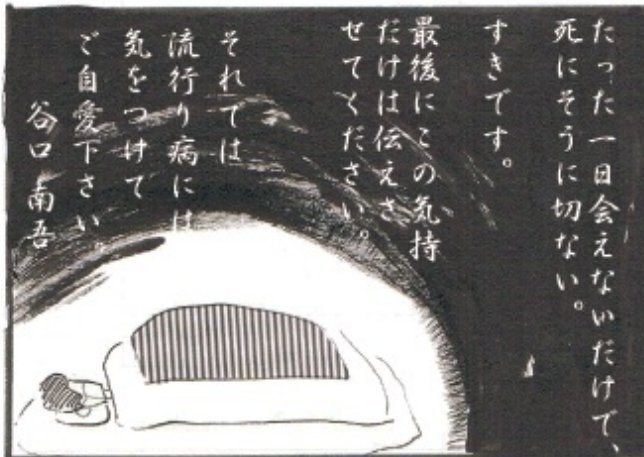 たった一日会えないだけで、
死にそうに切ない。
すきです。
最後にこの気持
だけは伝えさ
せてください。
それでは
流行り病には
気をつけて
ご自愛下さい。
谷口 南吾